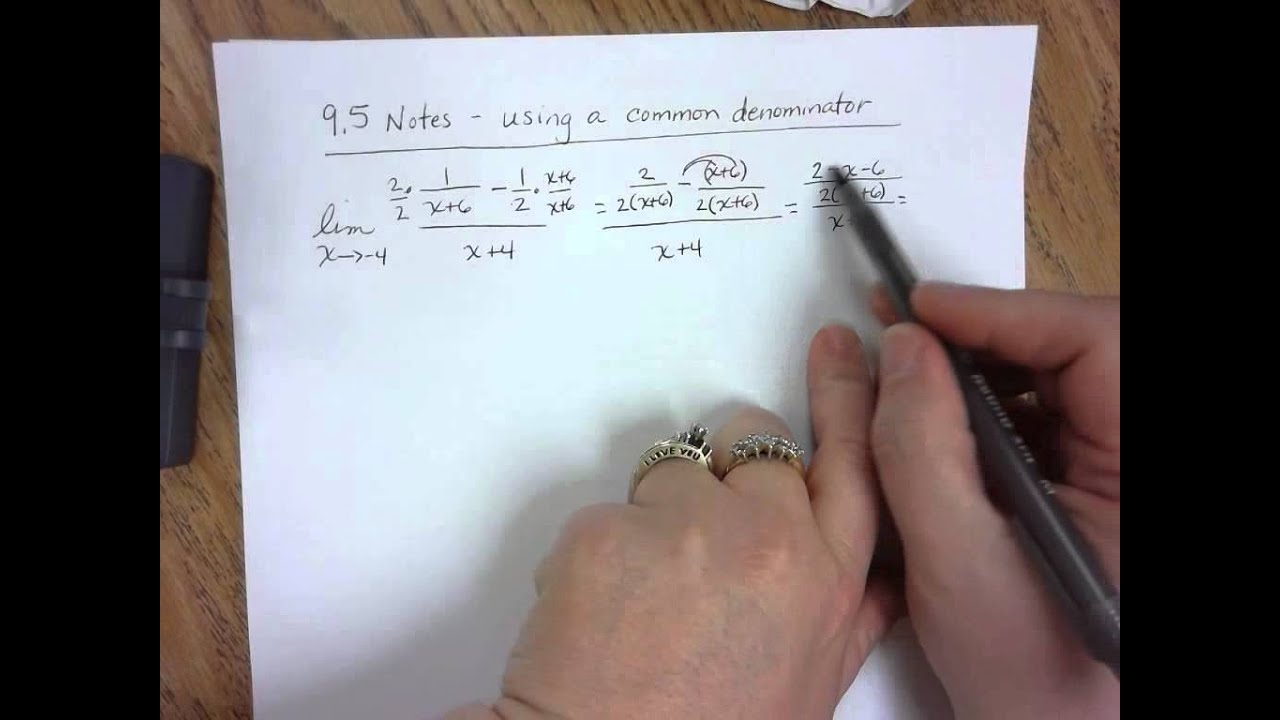 9.5 Notes - using a common denominator
lim x→-4 (2/2 · 1/(x+6) - 1/2 · (x+6)/(x+6))/(x+4) = (2/(2(x+6)) - (x+6)/(2(x+6)))/(x+4) = 2-x-6 / 2( +6) / x =
I LOVE YOU